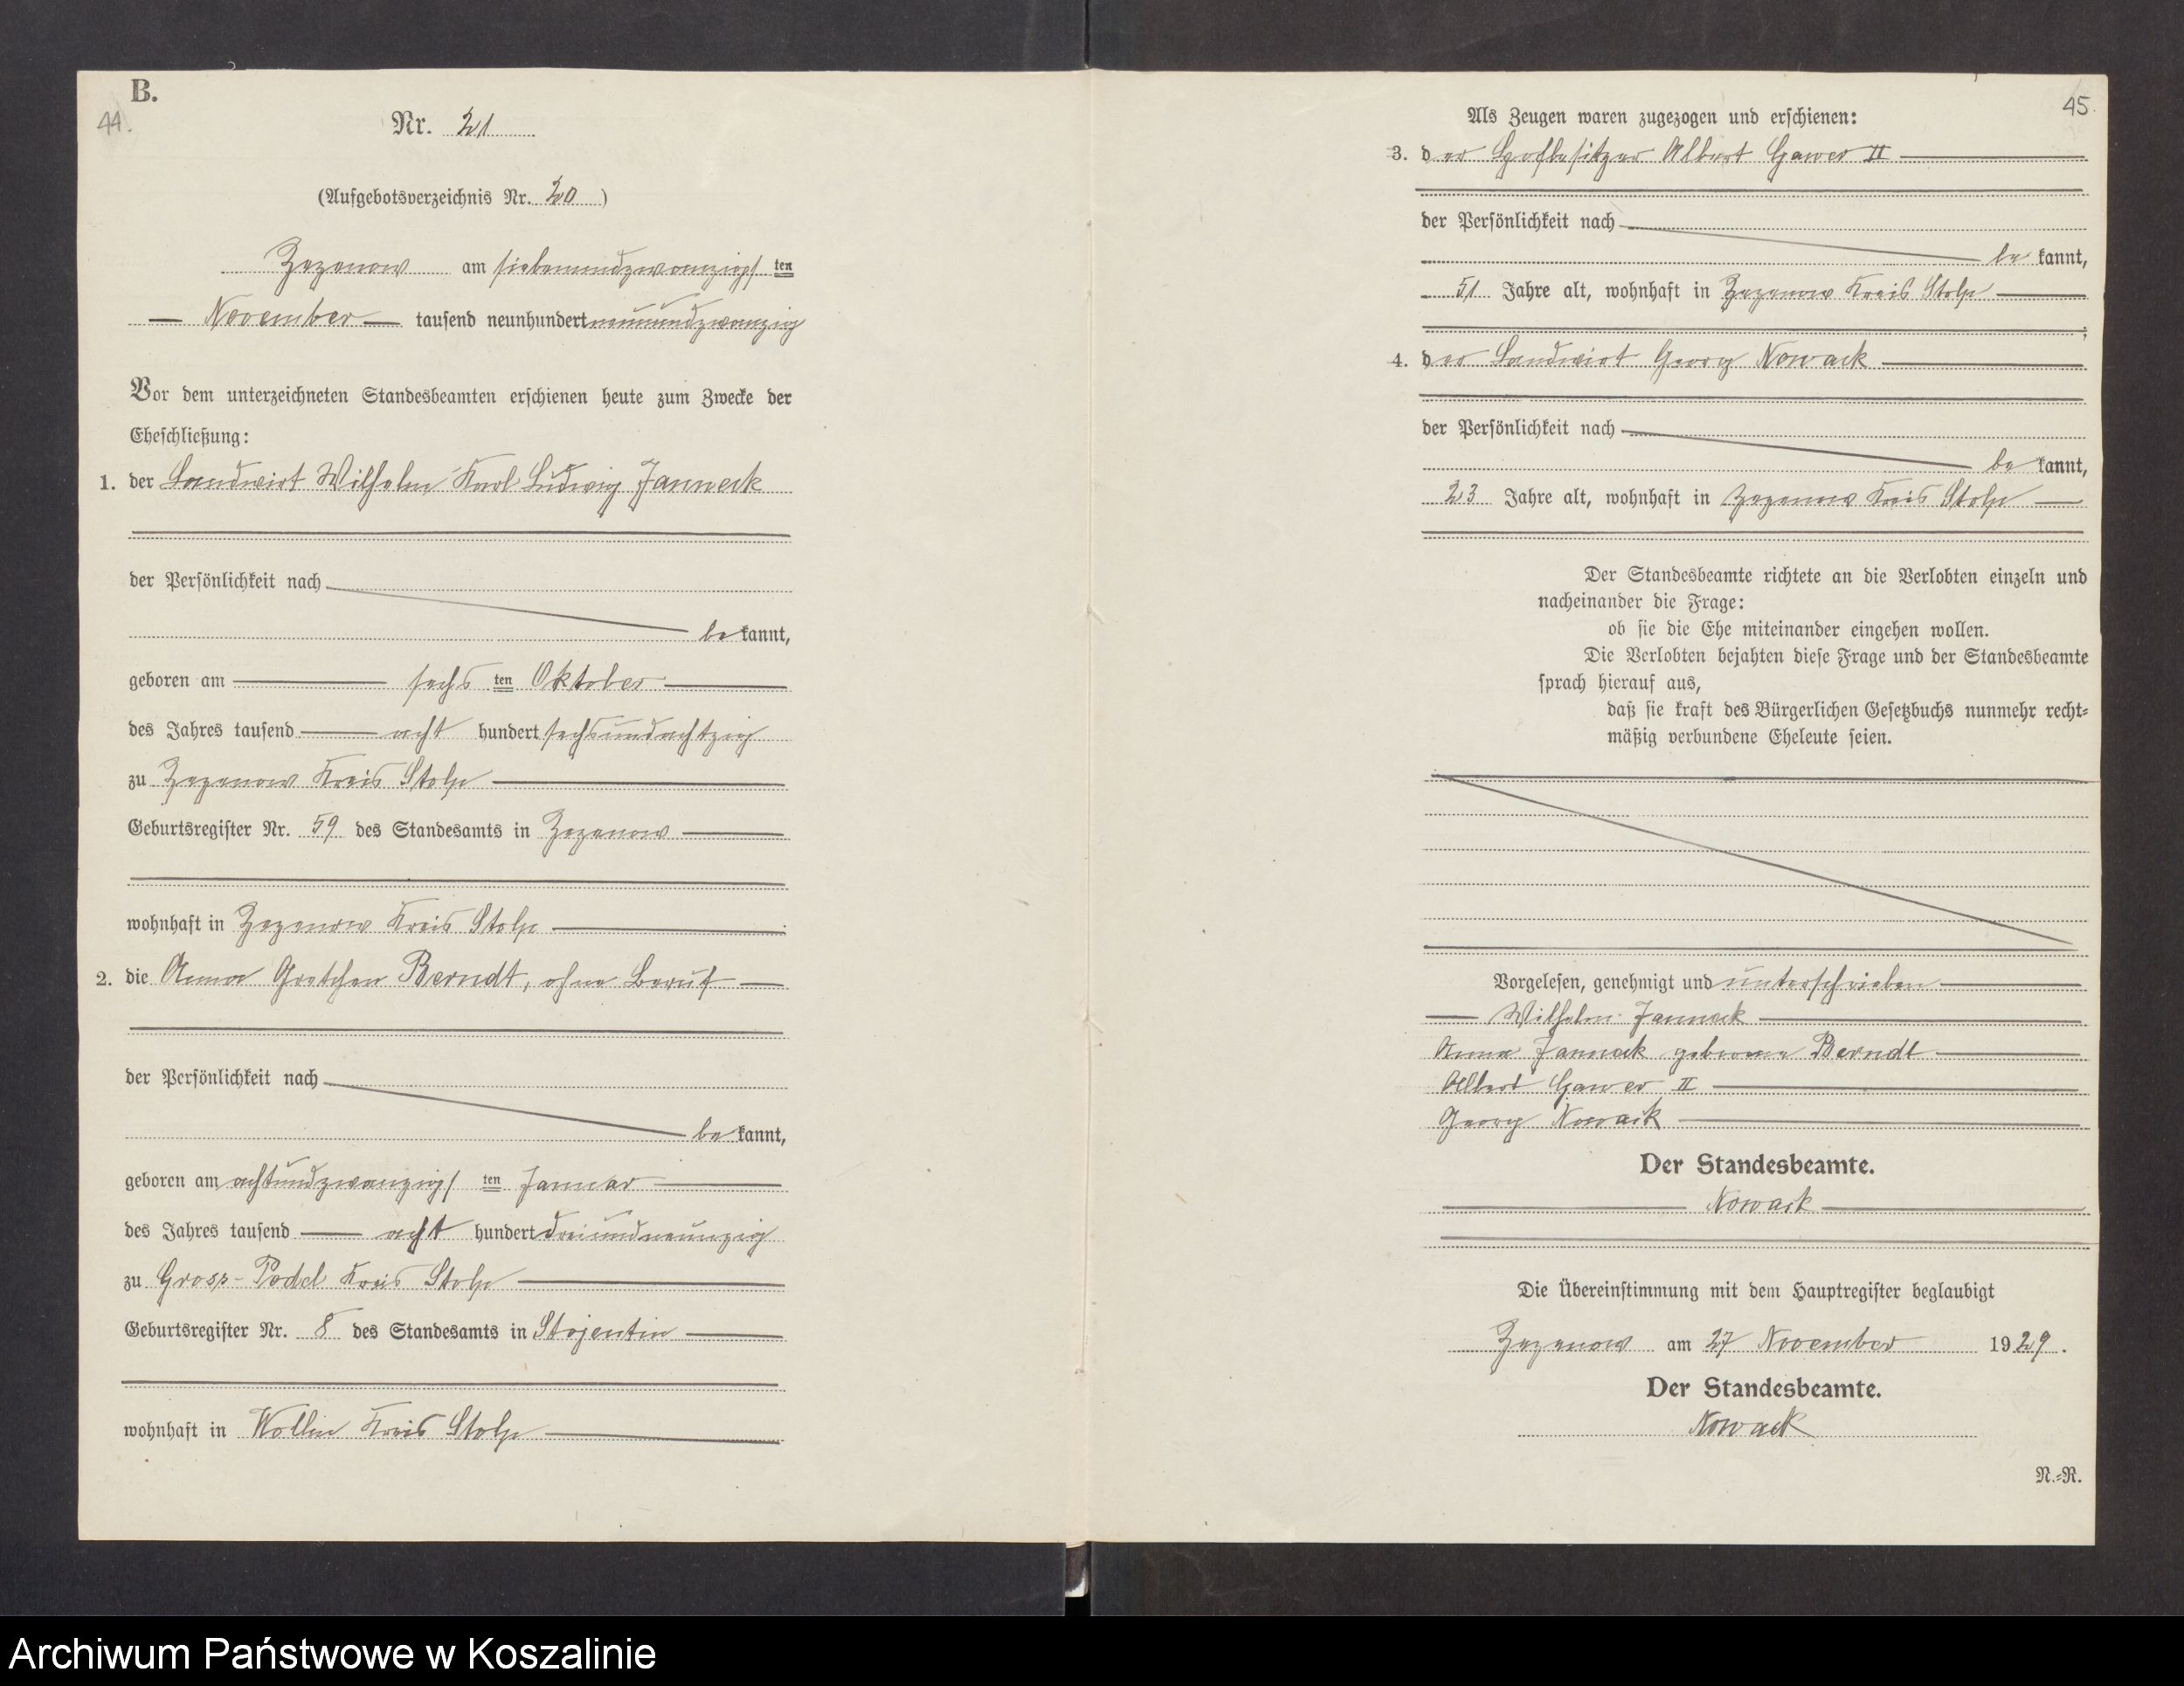 B.
44.
Nr. 21
(Aufgebotsverzeichnis Nr. 20)
Zezenow am siebenundzwanzigsten
November tausend neunhundert neunundzwanzig
Vor dem unterzeichneten Standesbeamten erschienen heute zum Zwecke der
Eheschließung:
1. der Landwirt Wilhelm Karl Ludwig Janneck
der Persönlichkeit nach
bekannt,
geboren am sechsten Oktober
des Jahres tausend acht hundert sechsundachtzig
zu Zezenow Kreis Stolp
Geburtsregister Nr. 59 des Standesamts in Zezenow
wohnhaft in Zezenow Kreis Stolp
2. die Anna Gretchen Berndt, ohne Beruf
der Persönlichkeit nach
bekannt,
geboren am achtundzwanzigsten Januar
des Jahres tausend acht hundert dreiundneunzig
zu Gross-Podel Kreis Stolp
Geburtsregister Nr. 8 des Standesamts in Stojentin
wohnhaft in Wollin Kreis Stolp
45.
Als Zeugen waren zugezogen und erschienen:
3. der Hofbesitzer Albert Gawer II
der Persönlichkeit nach
bekannt,
51 Jahre alt, wohnhaft in Zezenow Kreis Stolp
;
4. der Landwirt Georg Nowack
der Persönlichkeit nach
bekannt,
23 Jahre alt, wohnhaft in Zezenow Kreis Stolp
Der Standesbeamte richtete an die Verlobten einzeln und
nacheinander die Frage:
ob sie die Ehe miteinander eingehen wollen.
Die Verlobten bejahten diese Frage und der Standesbeamte
sprach hierauf aus,
daß sie kraft des Bürgerlichen Gesetzbuchs nunmehr recht-
mäßig verbundene Eheleute seien.
Vorgelesen, genehmigt und unterschrieben
Wilhelm Janneck
Anna Janneck geborene Berndt
Albert Gawer II
Georg Nowack
Der Standesbeamte.
Nowack
Die Übereinstimmung mit dem Hauptregister beglaubigt
Zezenow am 27 November 1929.
Der Standesbeamte.
Nowack
N.-R.
Archiwum Państwowe w Koszalinie